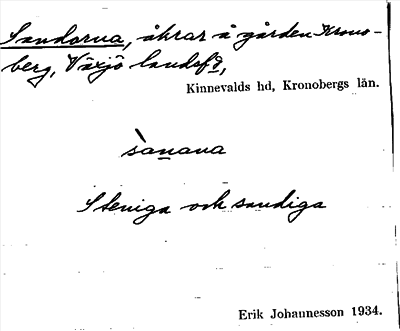 Sandorna, åkrar å gården Krono-
berg, Växjö landsfg,
Kinnevalds hd, Kronobergs län.
sànana
Steniga och sandiga
Erik Johannesson 1934.